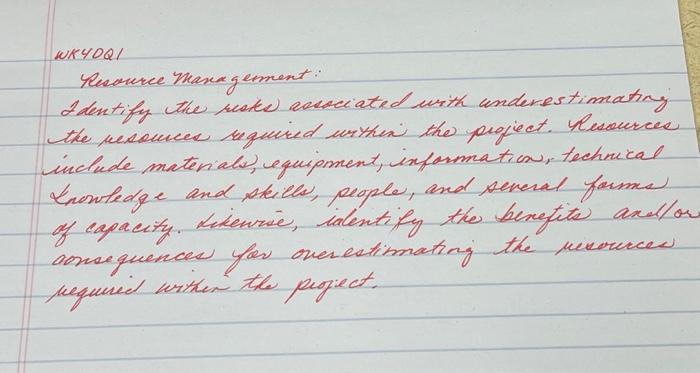 WK4DQ1
Resource Management:
Identify the risks associated with underestimating
the resources required within the project. Resources
include materials, equipment, information, technical
knowledge and skills, people, and several forms
of capacity. Likewise, identify the benefits and/or
consequences for overestimating the resources
required within the project.